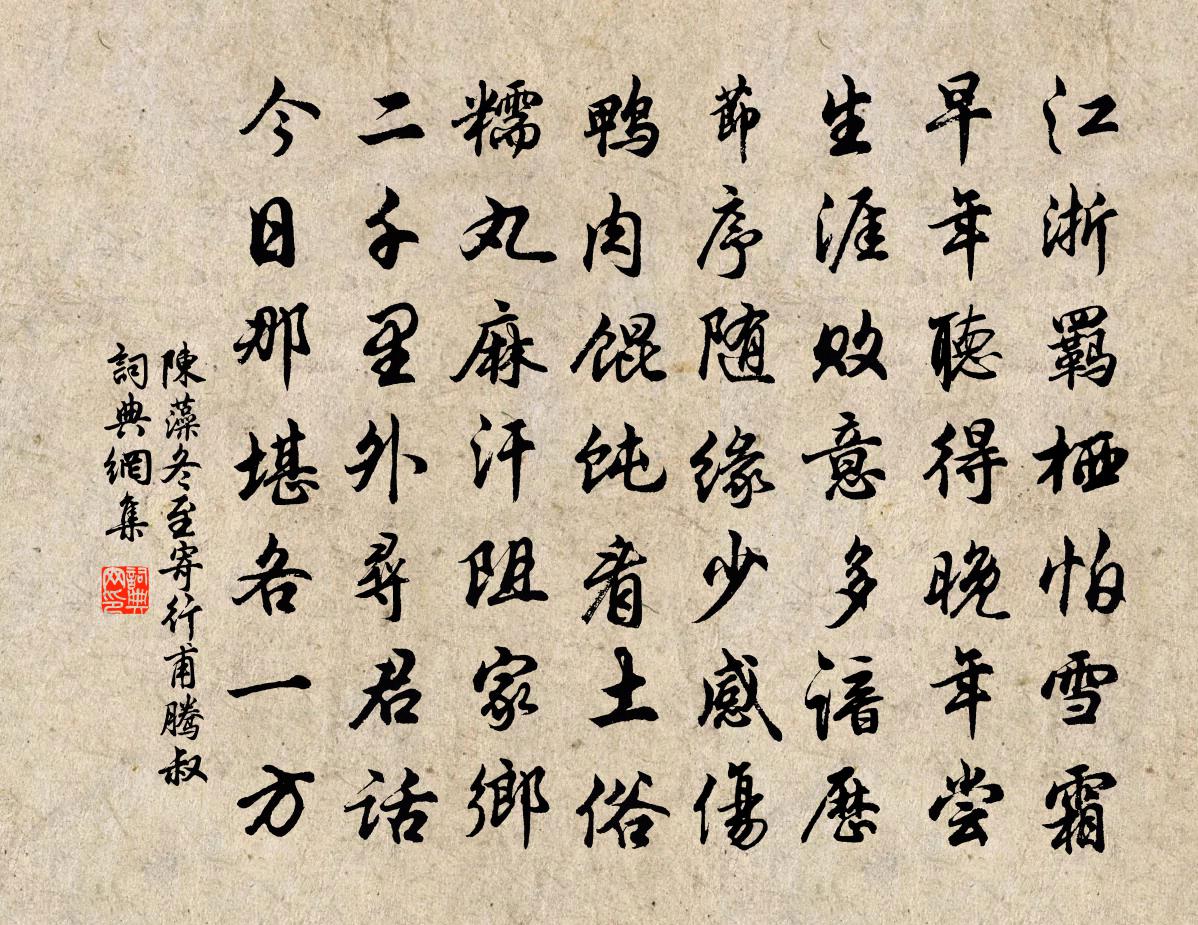 江浙羁栖怕雪霜
早年聽得晚年尝
生涯败意多谙歷
節序随緣少感傷
鸭肉馄饨看土俗
糯丸麻汗阻家鄉
二千里外尋君話
今日那堪各一方
陳藻冬至寄行甫腾叔
詞典網集
詞典網印